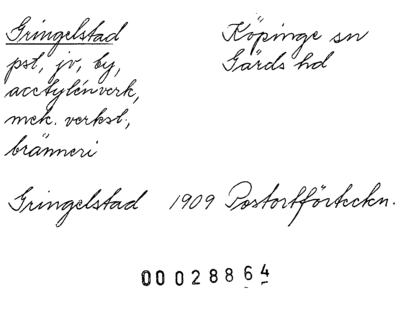 Gringelstad Köpinge sn
pst, jv, by, Gärds hd
acetylénverk,
mek. verkst.,
bränneri
Gringelstad 1909 Postortförteckn.
00 028864